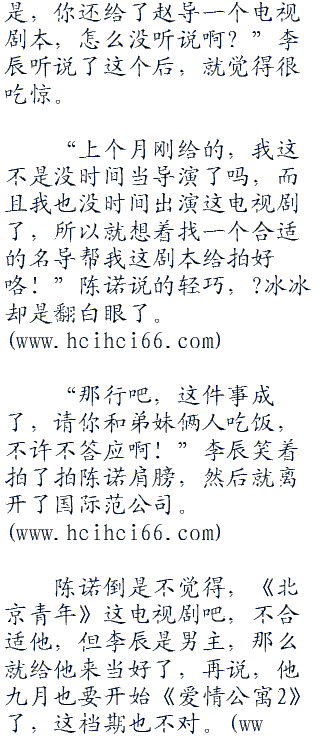 是，你还给了赵导一个电视
剧本，怎么没听说啊？”李
辰听说了这个后，就觉得很
吃惊。
“上个月刚给的，我这
不是没时间当导演了吗，而
且我也没时间出演这电视剧
了，所以就想着找一个合适
的名导帮我这剧本给拍好
咯！”陈诺说的轻巧，?冰冰
却是翻白眼了。
(www.hcihci66.com)
“那行吧，这件事成
了，请你和弟妹俩人吃饭，
不许不答应啊！”李辰笑着
拍了拍陈诺肩膀，然后就离
开了国际范公司。
(www.hcihci66.com)
陈诺倒是不觉得，《北
京青年》这电视剧吧，不合
适他，但李辰是男主，那么
就给他来当好了，再说，他
九月也要开始《爱情公寓2》
了，这档期也不对。(ww